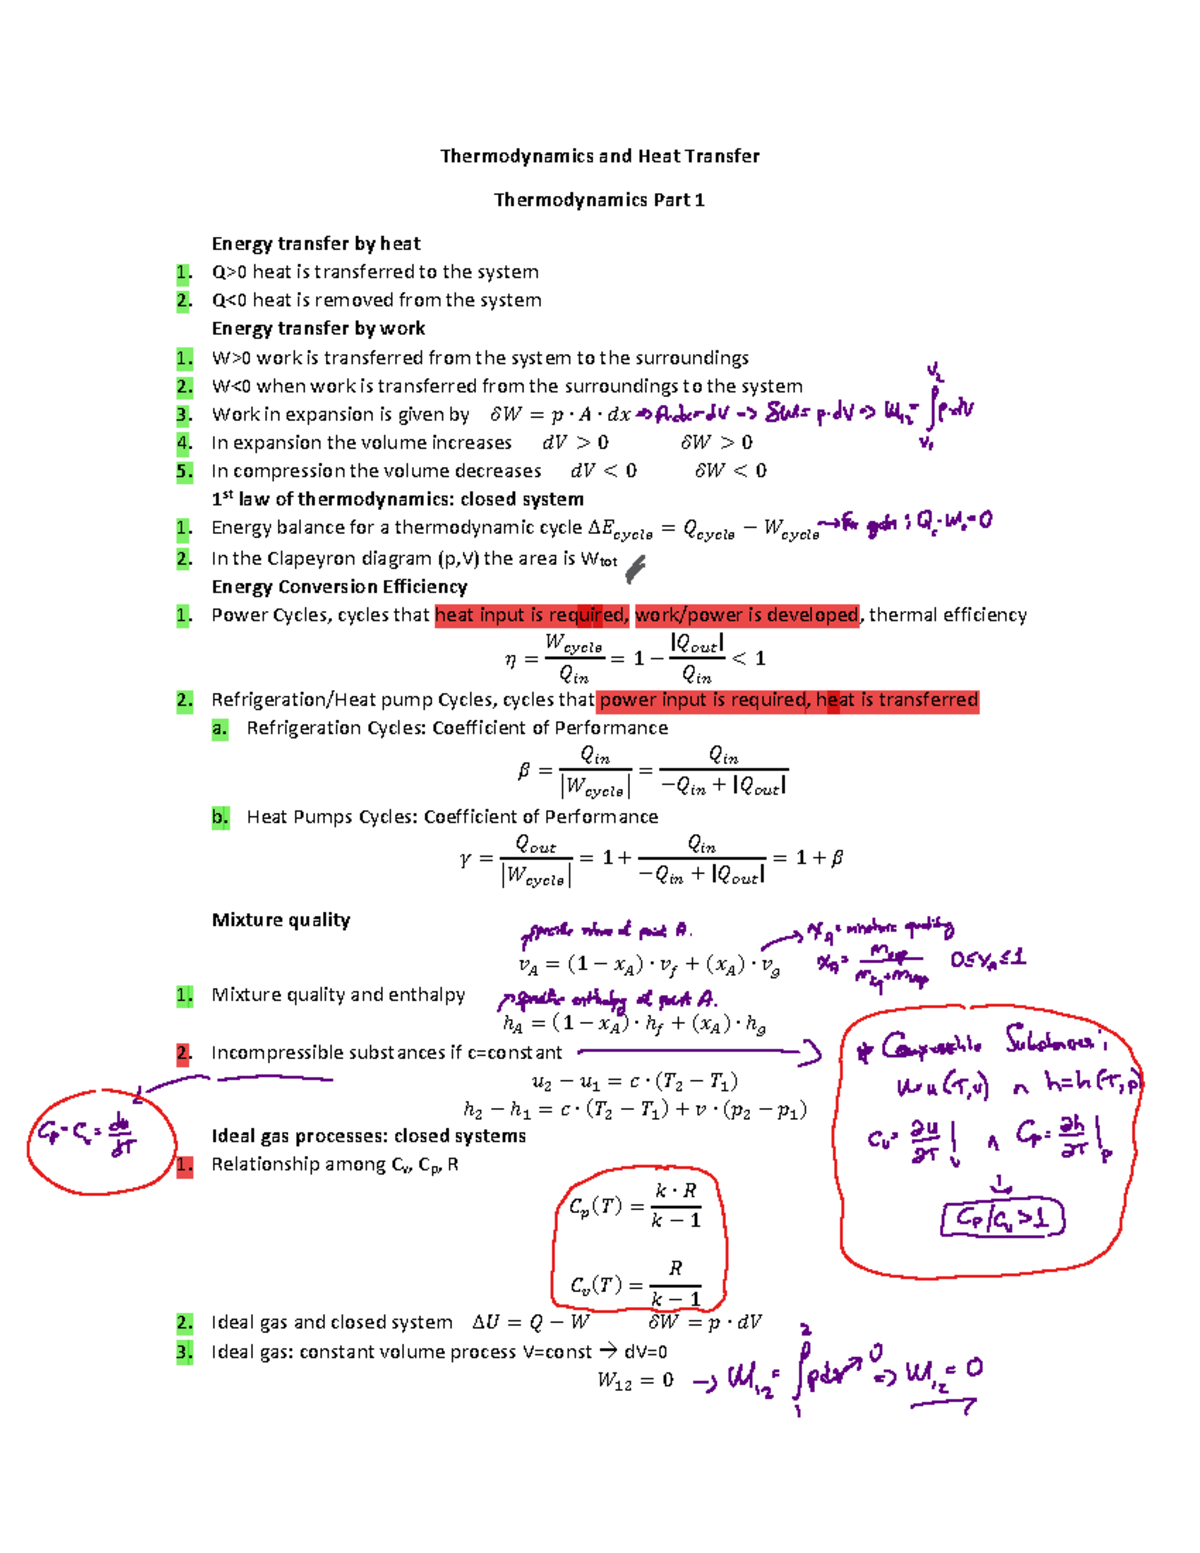 Thermodynamics and Heat Transfer
Thermodynamics Part 1
Energy transfer by heat
1. Q>0 heat is transferred to the system
2. Q<0 heat is removed from the system
Energy transfer by work
1. W>0 work is transferred from the system to the surroundings
2. W<0 when work is transferred from the surroundings to the system
3. Work in expansion is given by δW = p · A · dx ⇒ A·dx=dV → δW= p·dV → W₁₂ = ∫_{V₁}^{V₂} p·dV
4. In expansion the volume increases dV > 0 δW > 0
5. In compression the volume decreases dV < 0 δW < 0
1st law of thermodynamics: closed system
1. Energy balance for a thermodynamic cycle ΔE_cycle = Q_cycle − W_cycle
2. In the Clapeyron diagram (p,V) the area is Wtot
Energy Conversion Efficiency
1. Power Cycles, cycles that heat input is required, work/power is developed, thermal efficiency
η = W_cycle / Q_in = 1 − |Q_out| / Q_in < 1
2. Refrigeration/Heat pump Cycles, cycles that power input is required, heat is transferred
a. Refrigeration Cycles: Coefficient of Performance
β = Q_in / |W_cycle| = Q_in / (−Q_in + |Q_out|)
b. Heat Pumps Cycles: Coefficient of Performance
γ = Q_out / |W_cycle| = 1 + Q_in / (−Q_in + |Q_out|) = 1 + β
Mixture quality
→ x_A = mixture quality
v_A = (1 − x_A) · v_f + (x_A) · v_g
0≤x_A≤1
1. Mixture quality and enthalpy
→ specific enthalpy at point A.
h_A = (1 − x_A) · h_f + (x_A) · h_g
2. Incompressible substances if c=constant
* Compressible Substances:
u=u(T,v) ∧ h=h(T,p)
u₂ − u₁ = c · (T₂ − T₁)
h₂ − h₁ = c · (T₂ − T₁) + v · (p₂ − p₁)
C_p = C_v = du/dT
C_v = ∂u/∂T |_v ∧ C_p = ∂h/∂T |_p
Ideal gas processes: closed systems
1. Relationship among Cv, Cp, R
C_p(T) = k · R / (k − 1)
C_p/C_v >1
C_v(T) = R / (k − 1)
2. Ideal gas and closed system ΔU = Q − W δW = p · dV
3. Ideal gas: constant volume process V=const → dV=0
W₁₂ = 0 → W₁₂ = ∫_1^2 pdV → 0 ⇒ W₁₂ = 0